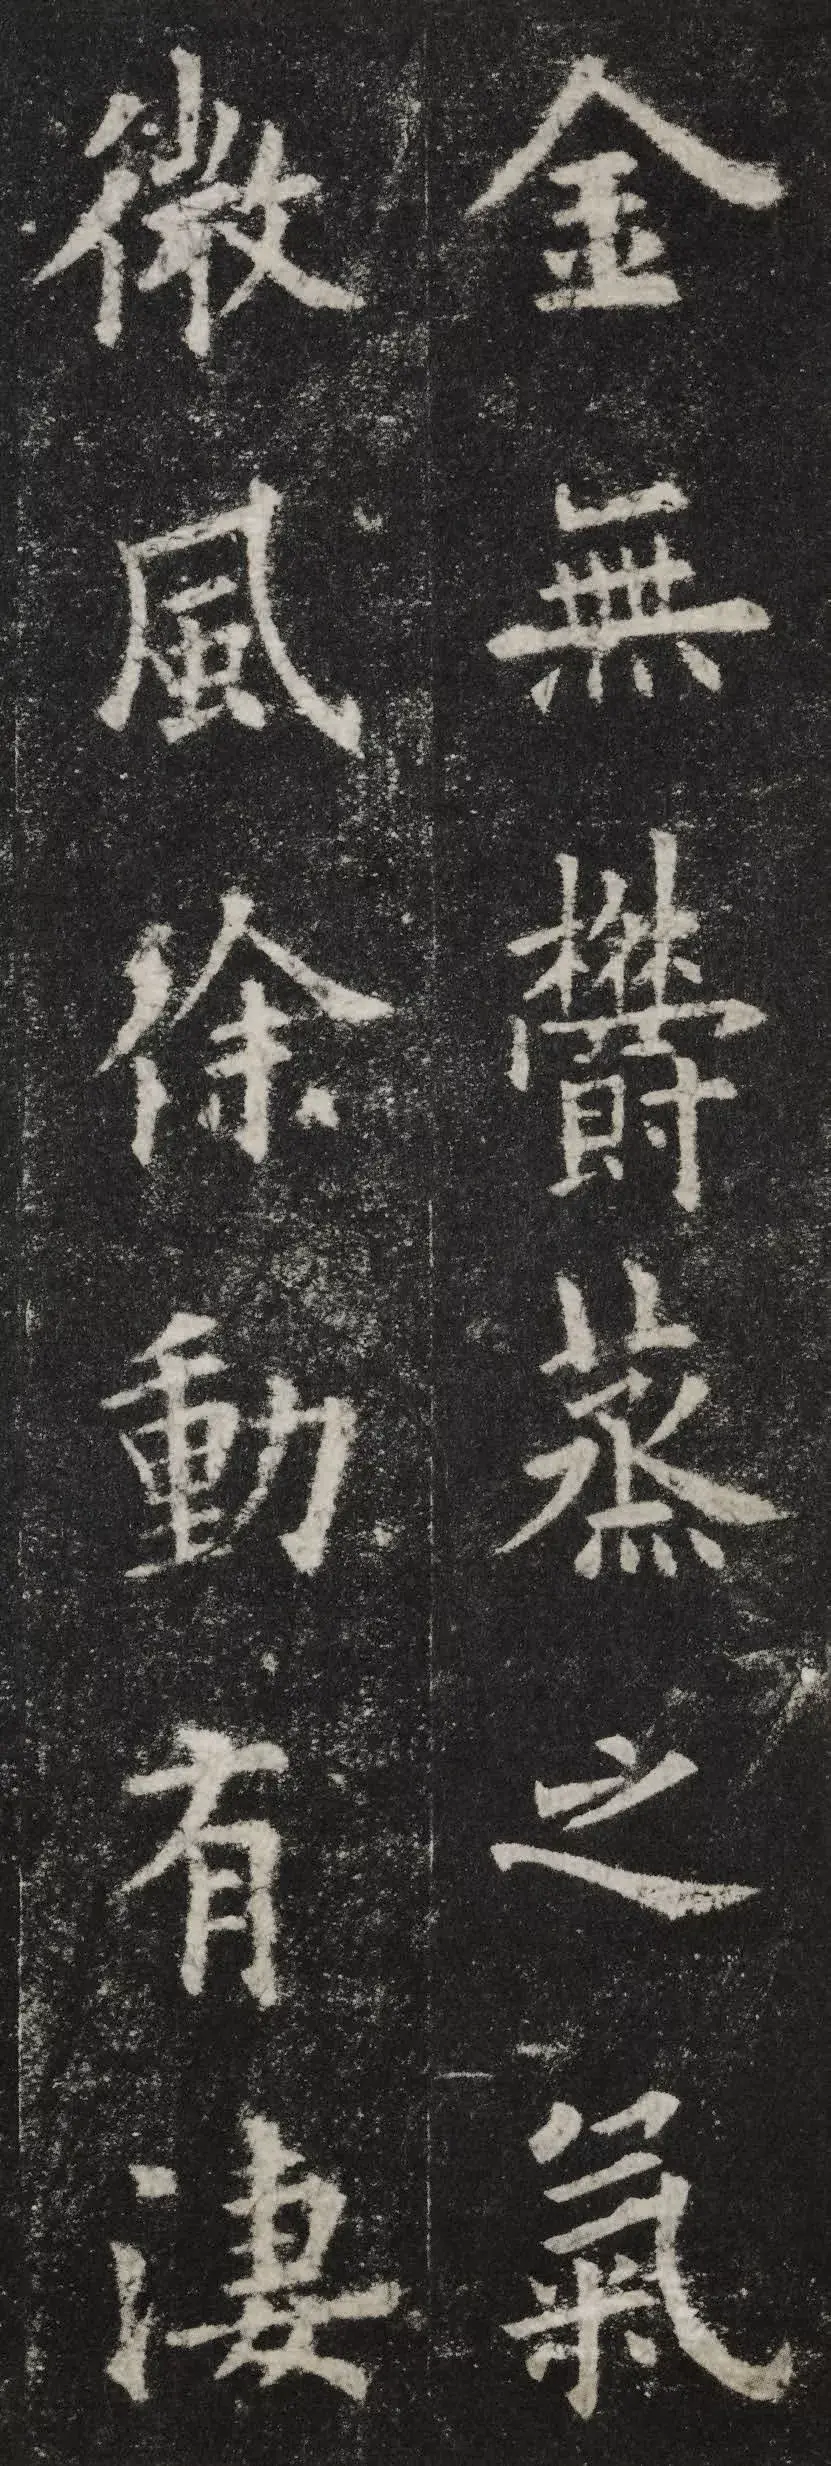 金無欝蒸之氣
微風徐動有淒